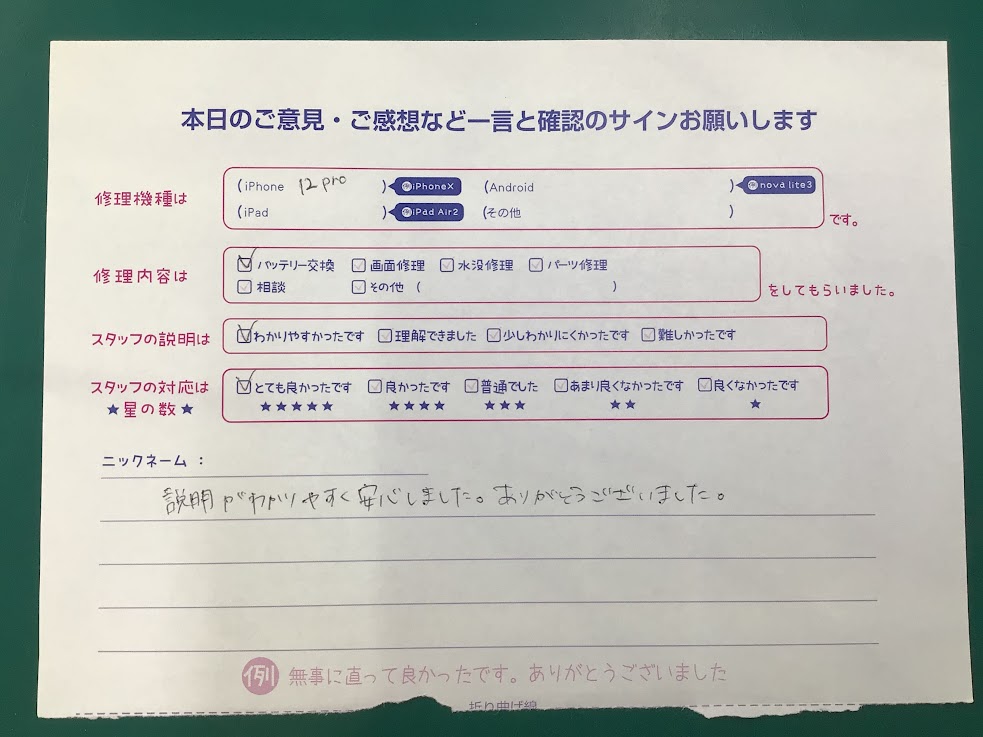 本日のご意見・ご感想など一言と確認のサインお願いします
修理機種は (iPhone 12 pro ) 例 iPhoneX (Android ) 例 nova lite3
(iPad ) 例 iPad Air2 (その他 ) です。
修理内容は ☑バッテリー交換 □画面修理 □水没修理 □パーツ修理
□相談 □その他 ( ) をしてもらいました。
スタッフの説明は ☑わかりやすかったです □理解できました □少しわかりにくかったです □難しかったです
スタッフの対応は ☑とても良かったです □良かったです □普通でした □あまり良くなかったです □良くなかったです
★星の数★ ★★★★★ ★★★★ ★★★ ★★ ★
ニックネーム：
説明がわかりやすく安心しました。ありがとうございました。
例 無事に直って良かったです。ありがとうございました
折り曲げ線